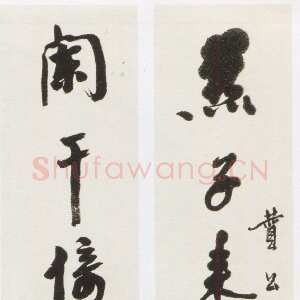 燕子来
公
闌干倚
Shufawang.CN